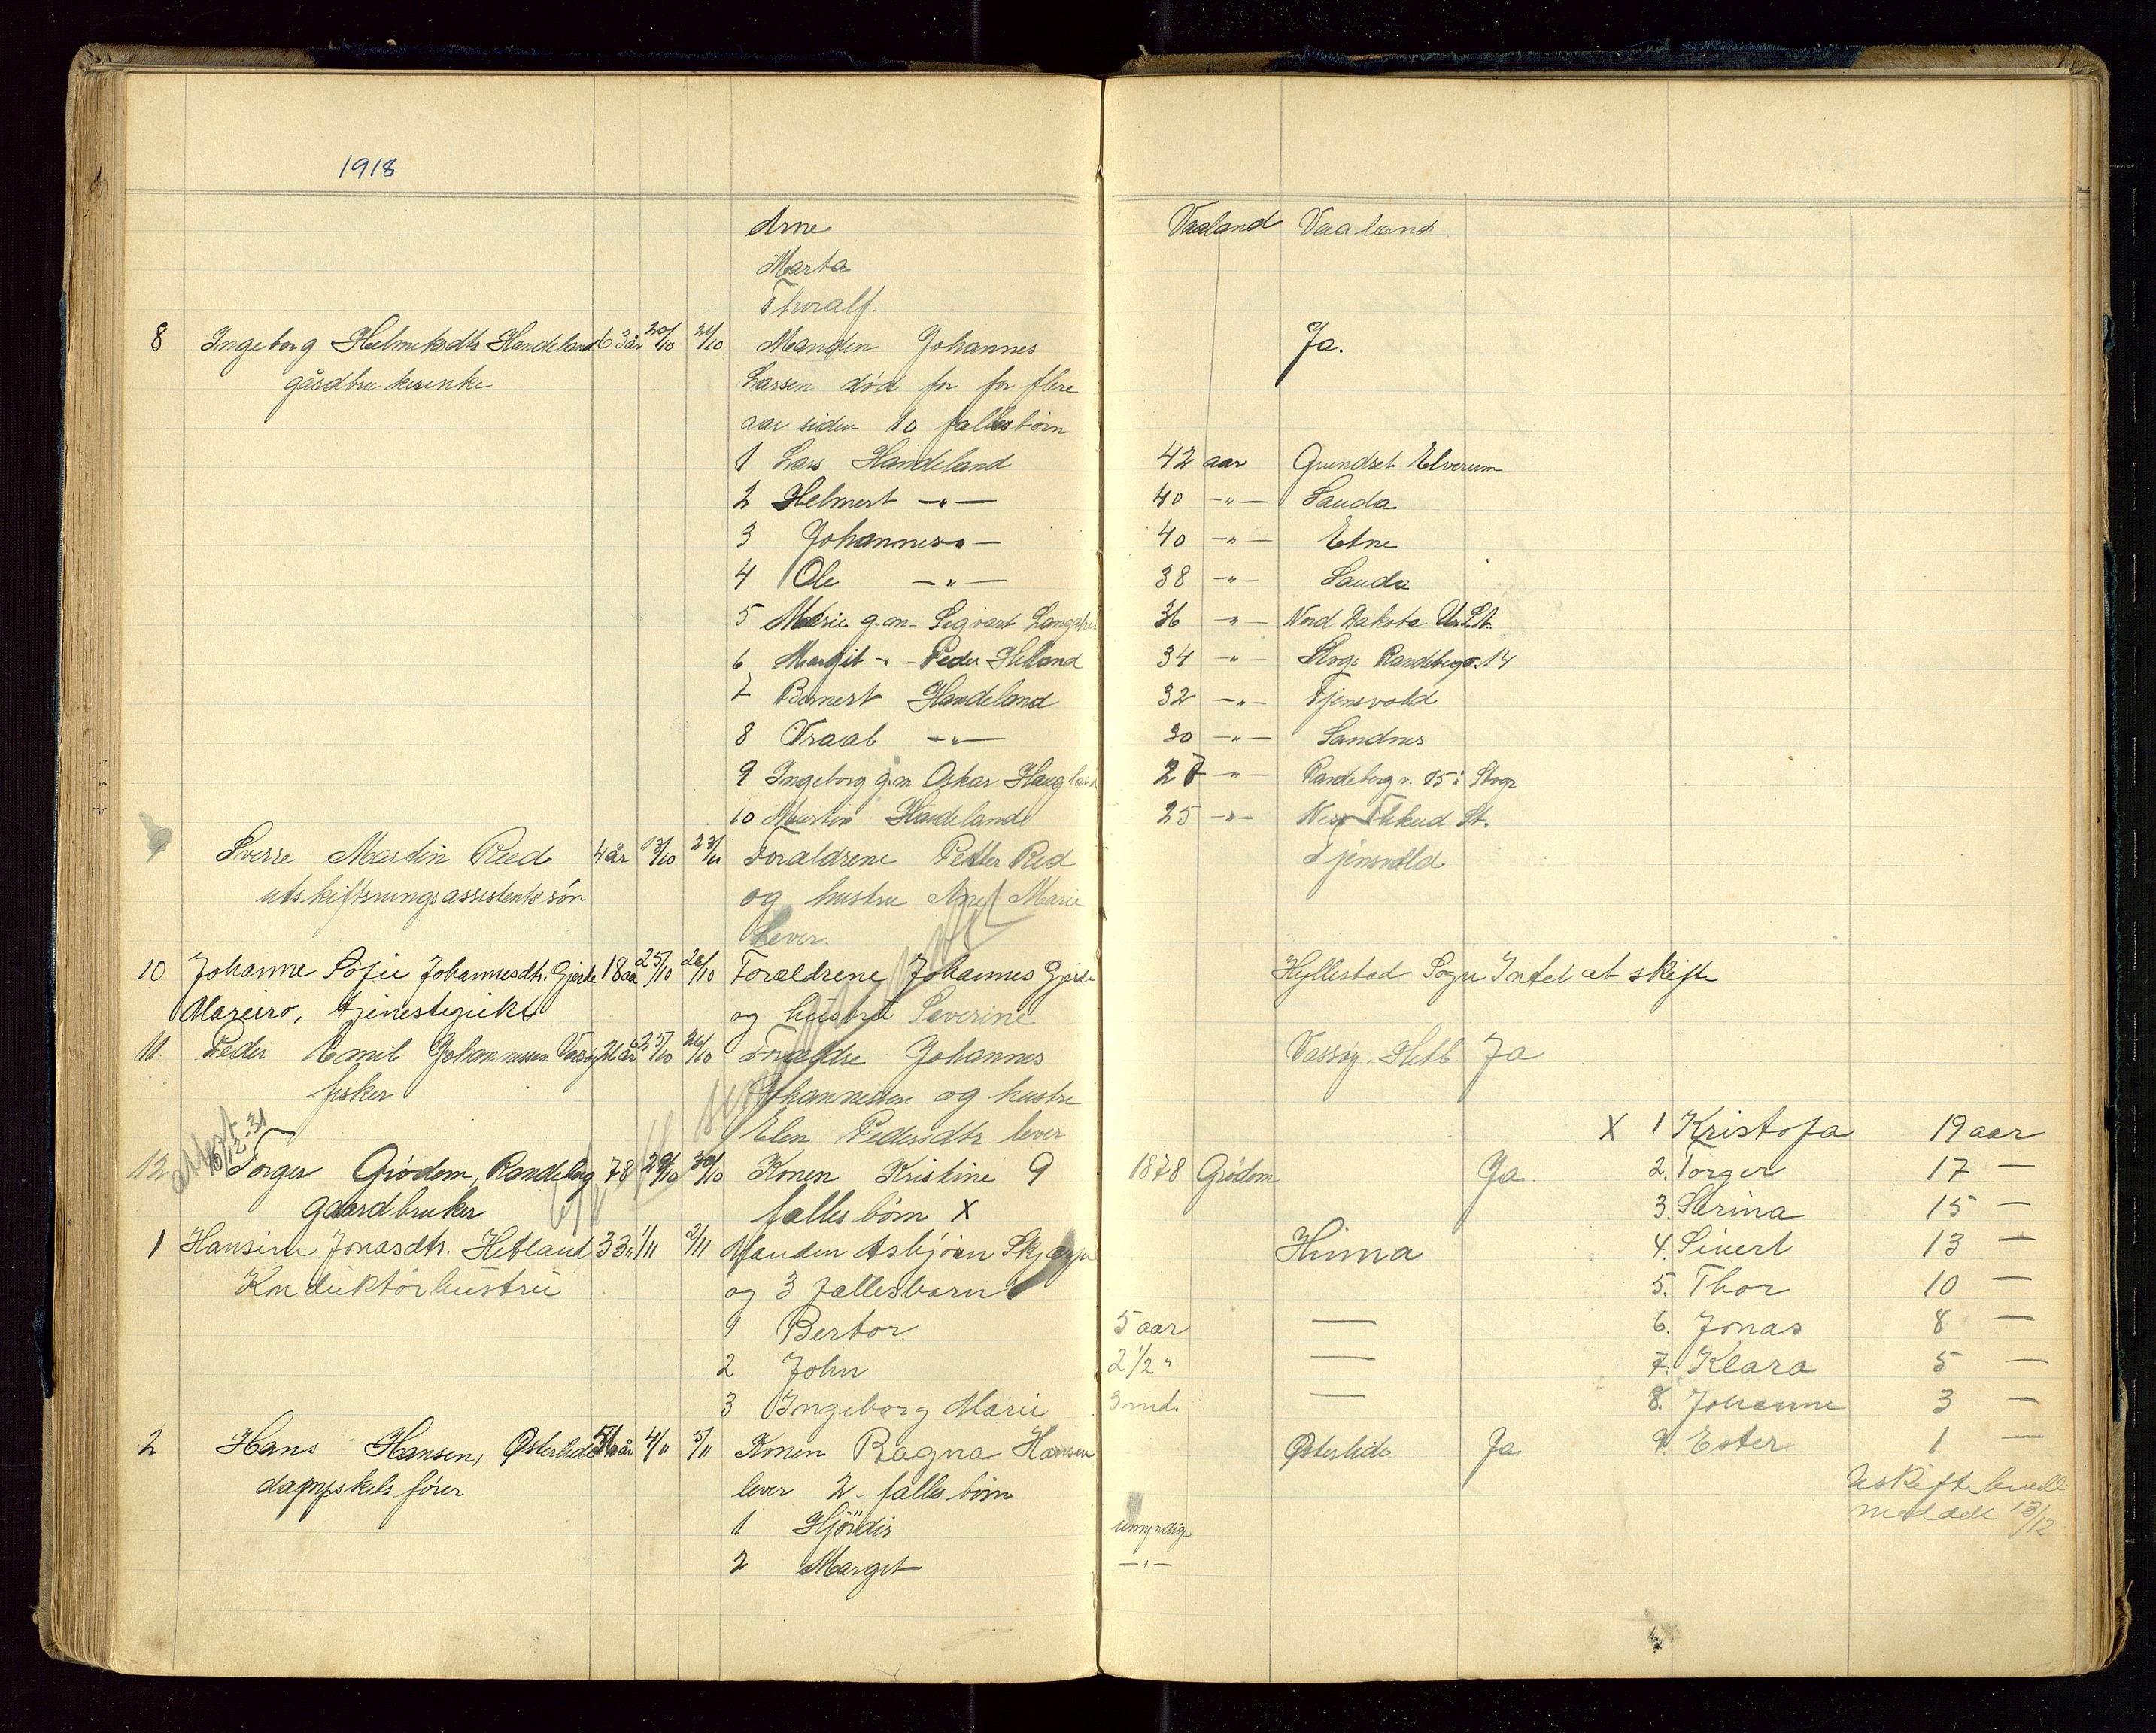 1918
Arne Vaaland Vaaland
Marta
Thoralf.
8 Ingeborg Helmiksdtr Handeland 63 år 20/10 21/10 Manden Johannes Ja.
gårdbrukerenke Larsen død for for flere
aar siden 10 fallesbörn
1 Lars Handeland 42 aar Grundset Elverum
2 Helmert —"— 40 —"— Sauda
3 Johannes —"— 40 —"— Etne
4 Ole —"— 38 —"— Sauda
5 Marie g.m. Sigvart 36 —"— Nord Dakota U.St.
6 Margit -"- Peder Helland 34 —"— Randeberg 14
7 Bernert Handeland 32 —"— Tjensvold
8 Vraal —"— 30 —"— Sandnes
9 Ingeborg g.m. Oskar Haugland 27 —"— Randeberg
10 Martin Handeland 25 —"— St.
Sverre Martin Reed 4 år 13/10 23/10 Foraldrene Petter Red Tjensvold
utskiftningsassistents sön og hustru Marie
Lever.
10 Johanne Sofie Johannesdtr. Gjerde 18 aar 25/10 26/10 Foraldrene Johannes Gjerde Hyllestad Sogn Intet at skifte
tjenestepike og hustru Severine
11. Peder Emil Johannesen Vassöy år 25/10 26/10 Foraldre Johannes Vassöy. Hetl Ja
fisker Johannessen og hustru
Elen Pedersdtr lever X 1 Kristofa 19 aar
attest 16/12-31
12 Torger Grödem, Randeberg 78 29/10 30/10 Konen Kristine 9 1878 Grödem Ja. 2. Torger 17 —
gaardbruker falles börn X 3. Serina 15 —
1 Hansine Jonasdtr. Hetland 33 1/11 2/11 Manden Asbjörn Hinna 4. Sivert 13 —
Konduktörhustru og 3 fallesbarn 5. Thor 10 —
1 Bertor 5 aar — 6. Jonas 8 —
2 John 2 1/2 " — 7. Klara 5 —
3 Ingeborg Marie 3 md. — 8. Johanne 3 —
2 Hans Hansen, Österlide 56 år 4/11 5/11 Konen Ragna Hansen Österlide Ja 9. Ester 1 —
dampskibsförer lever 2 falles börn Uskiftebevill.
meddelt 13/12
1 Hjördis umyndige
2 Margit —"—